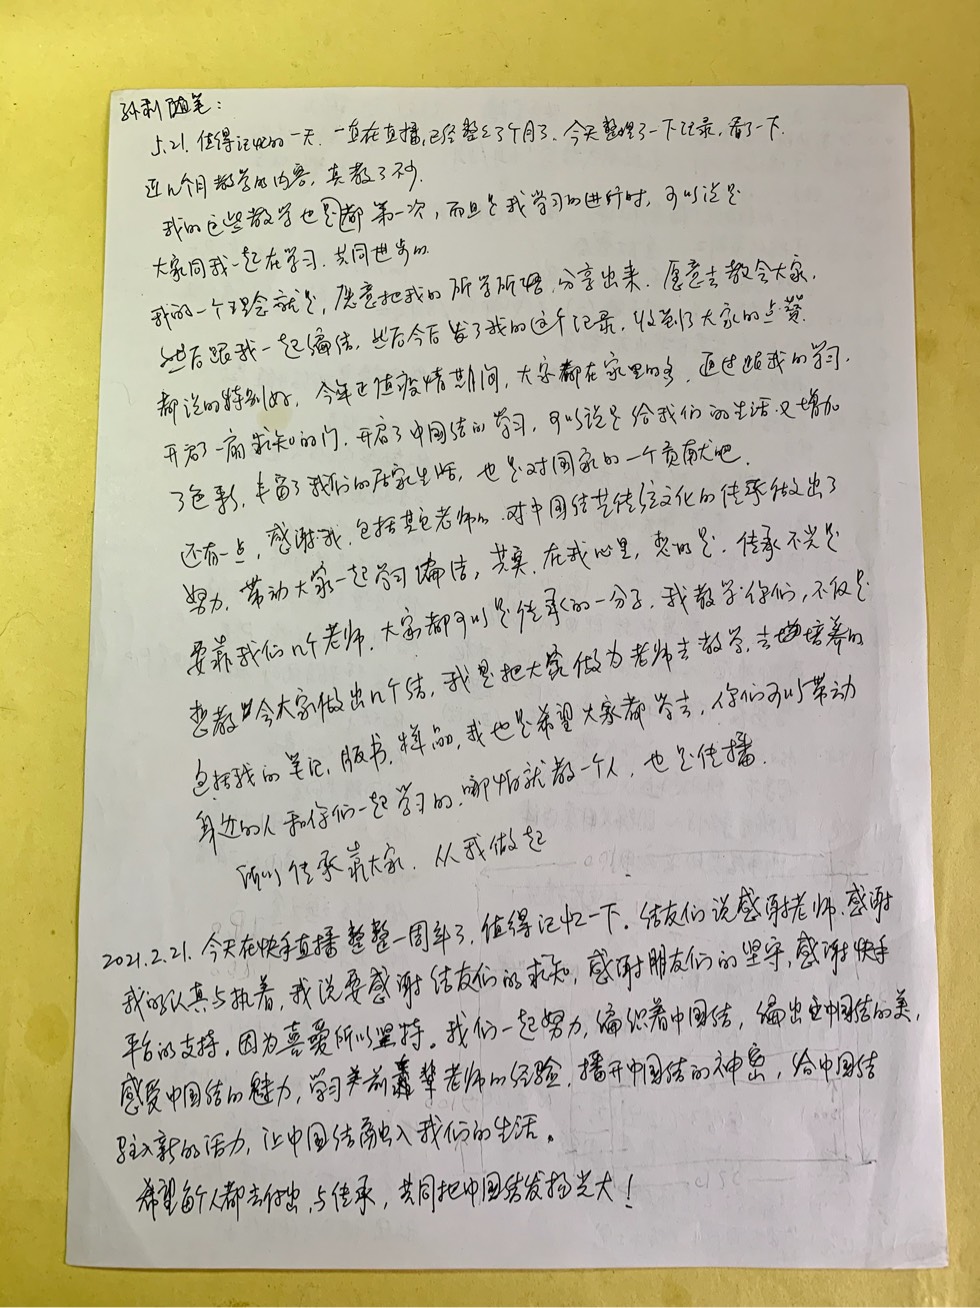 孙利随笔：
5.21. 值得记忆的一天. 一直在直播,已经整整3个月了. 今天整理了一下记录，看了一下.
近几个月教学的内容，真教了不少.
我的这些教学也是都第一次，而且是我学习的进行时，可以说是
大家同我一起在学习. 共同进步的.
我的一个理念就是，愿意把我的所学所悟,分享出来. 愿意去教会大家.
然后跟我一起编结. 然后今后发了我的这个记录，收到了大家的点赞.
都说的特别好，今年正值疫情期间，大家都在家里的多，通过跟我的学习.
开启了一扇求知的门. 开启了中国结的学习，可以说是给我们的生活又增加
了色彩，丰富了我们的居家生活，也是对国家的一个贡献吧.
还有一点，感谢我，包括其它老师的. 对中国结艺传统文化的传承做出了
努力，带动大家一起学习编结，其实，在我心里，想的是，传承不光是
要靠我们几个老师. 大家都可以是传承的一分子. 我教学你们，不仅是
想教会大家做出几个结，我是把大家做为老师去教学,去培养的
包括我的笔记，版书，样品，我也是希望大家都学去，你们可以带动
身边的人和你们一起学习的.哪怕就教一个人，也是传播.
所以传承靠大家. 从我做起
2021.2.21. 今天在快手直播整整一周年了，值得记忆一下. 结友们说感谢老师.感谢
我的认真与执着，我说要感谢结友们的求知，感谢朋友们的坚守,感谢快手
平台的支持，因为喜爱所以坚持。我们一起努力，编织着中国结，编出中国结的美，
感受中国结的魅力，学习前辈老师的经验，播开中国结的神密，给中国结
注入新的活力，让中国结融入我们的生活。
希望每个人都去付出,与传承，共同把中国结发扬光大！